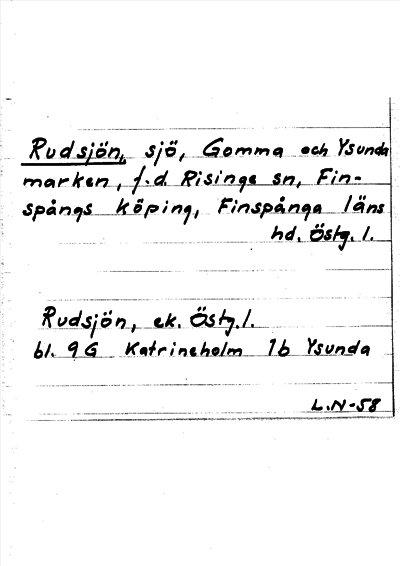 Rudsjön, sjö, Gomma och Ysunda
marken, f.d. Risinge sn, Fin-
spångs köping, Finspånga läns
hd. Östg. l.
Rudsjön, ek. Östg. l.
bl. 9G Katrineholm 1b Ysunda
L.N-58